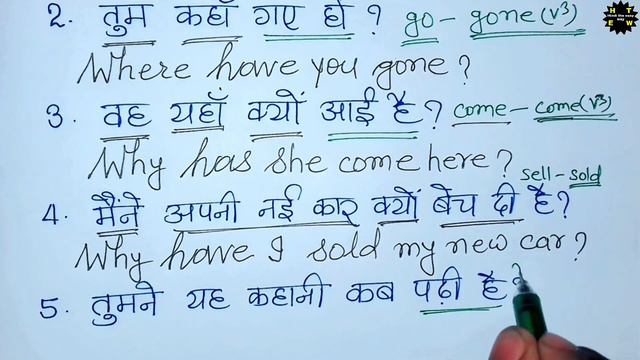 2. तुम कहाँ गए हो ? go - gone (v3)
Where have you gone ?
3. वह यहाँ क्यों आई है ? come - come (v3)
Why has she come here ?
sell - sold
4. मैंने अपनी नई कार क्यों बेच दी है ?
Why have I sold my new car ?
5. तुमने यह कहानी कब पढ़ी है ?